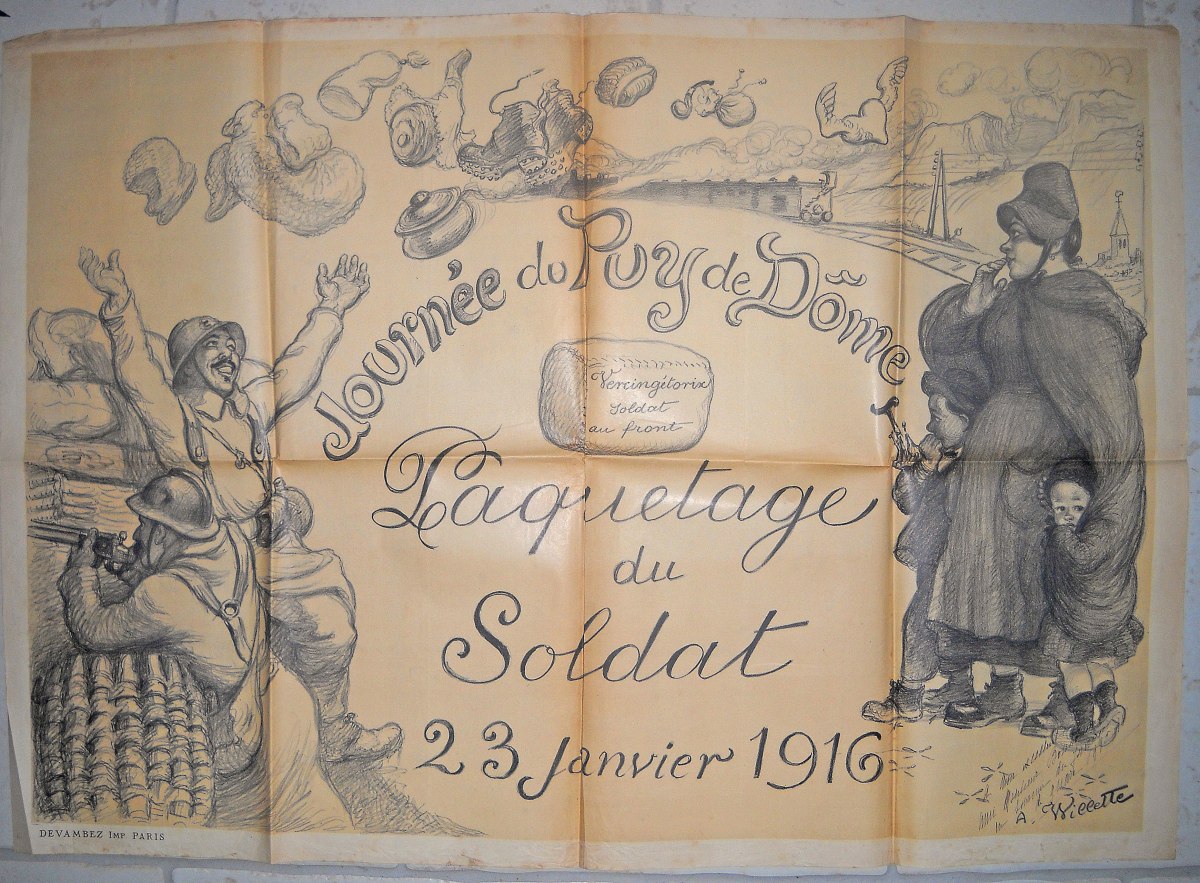 Journée du Puy de Dôme
Vercingétorix
soldat
au front
Paquetage
du
Soldat
23 janvier 1916
A. Willette
DEVAMBEZ IMP. PARIS